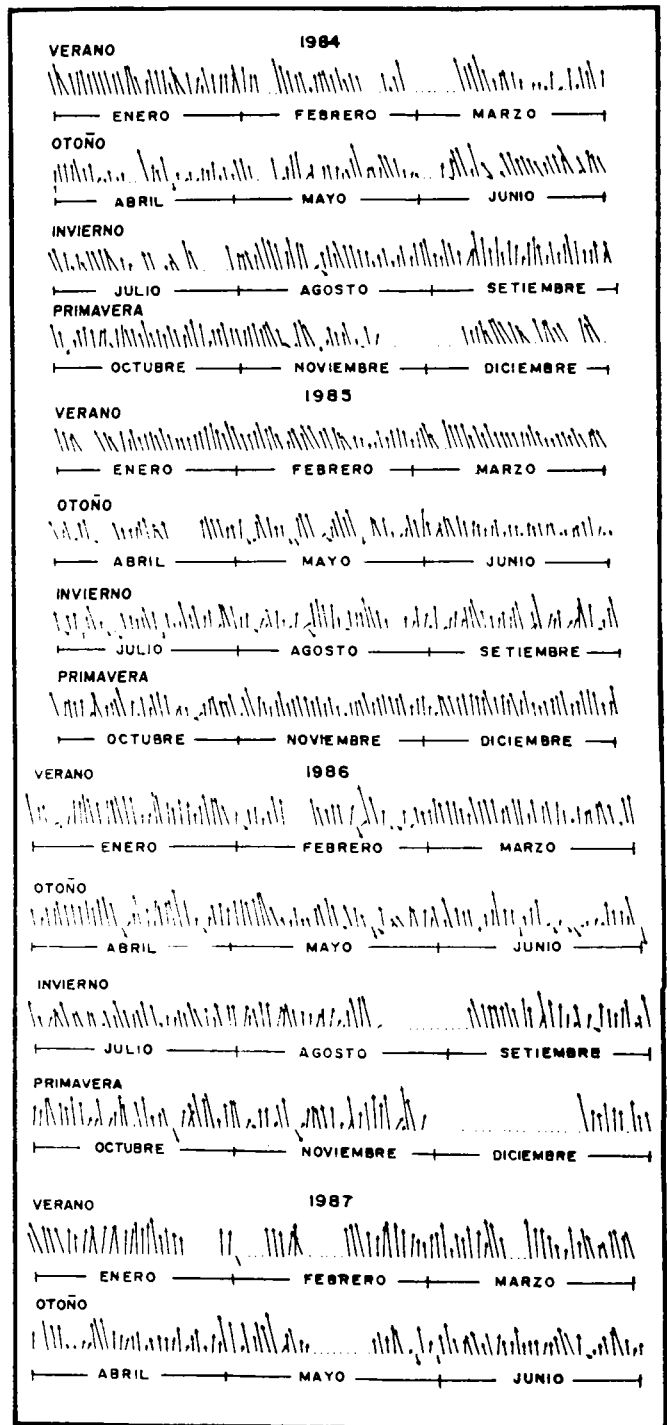 1984
VERANO
ENERO FEBRERO MARZO
OTOÑO
ABRIL MAYO JUNIO
INVIERNO
JULIO AGOSTO SETIEMBRE
PRIMAVERA
OCTUBRE NOVIEMBRE DICIEMBRE
1985
VERANO
ENERO FEBRERO MARZO
OTOÑO
ABRIL MAYO JUNIO
INVIERNO
JULIO AGOSTO SETIEMBRE
PRIMAVERA
OCTUBRE NOVIEMBRE DICIEMBRE
1986
VERANO
ENERO FEBRERO MARZO
OTOÑO
ABRIL MAYO JUNIO
INVIERNO
JULIO AGOSTO SETIEMBRE
PRIMAVERA
OCTUBRE NOVIEMBRE DICIEMBRE
1987
VERANO
ENERO FEBRERO MARZO
OTOÑO
ABRIL MAYO JUNIO